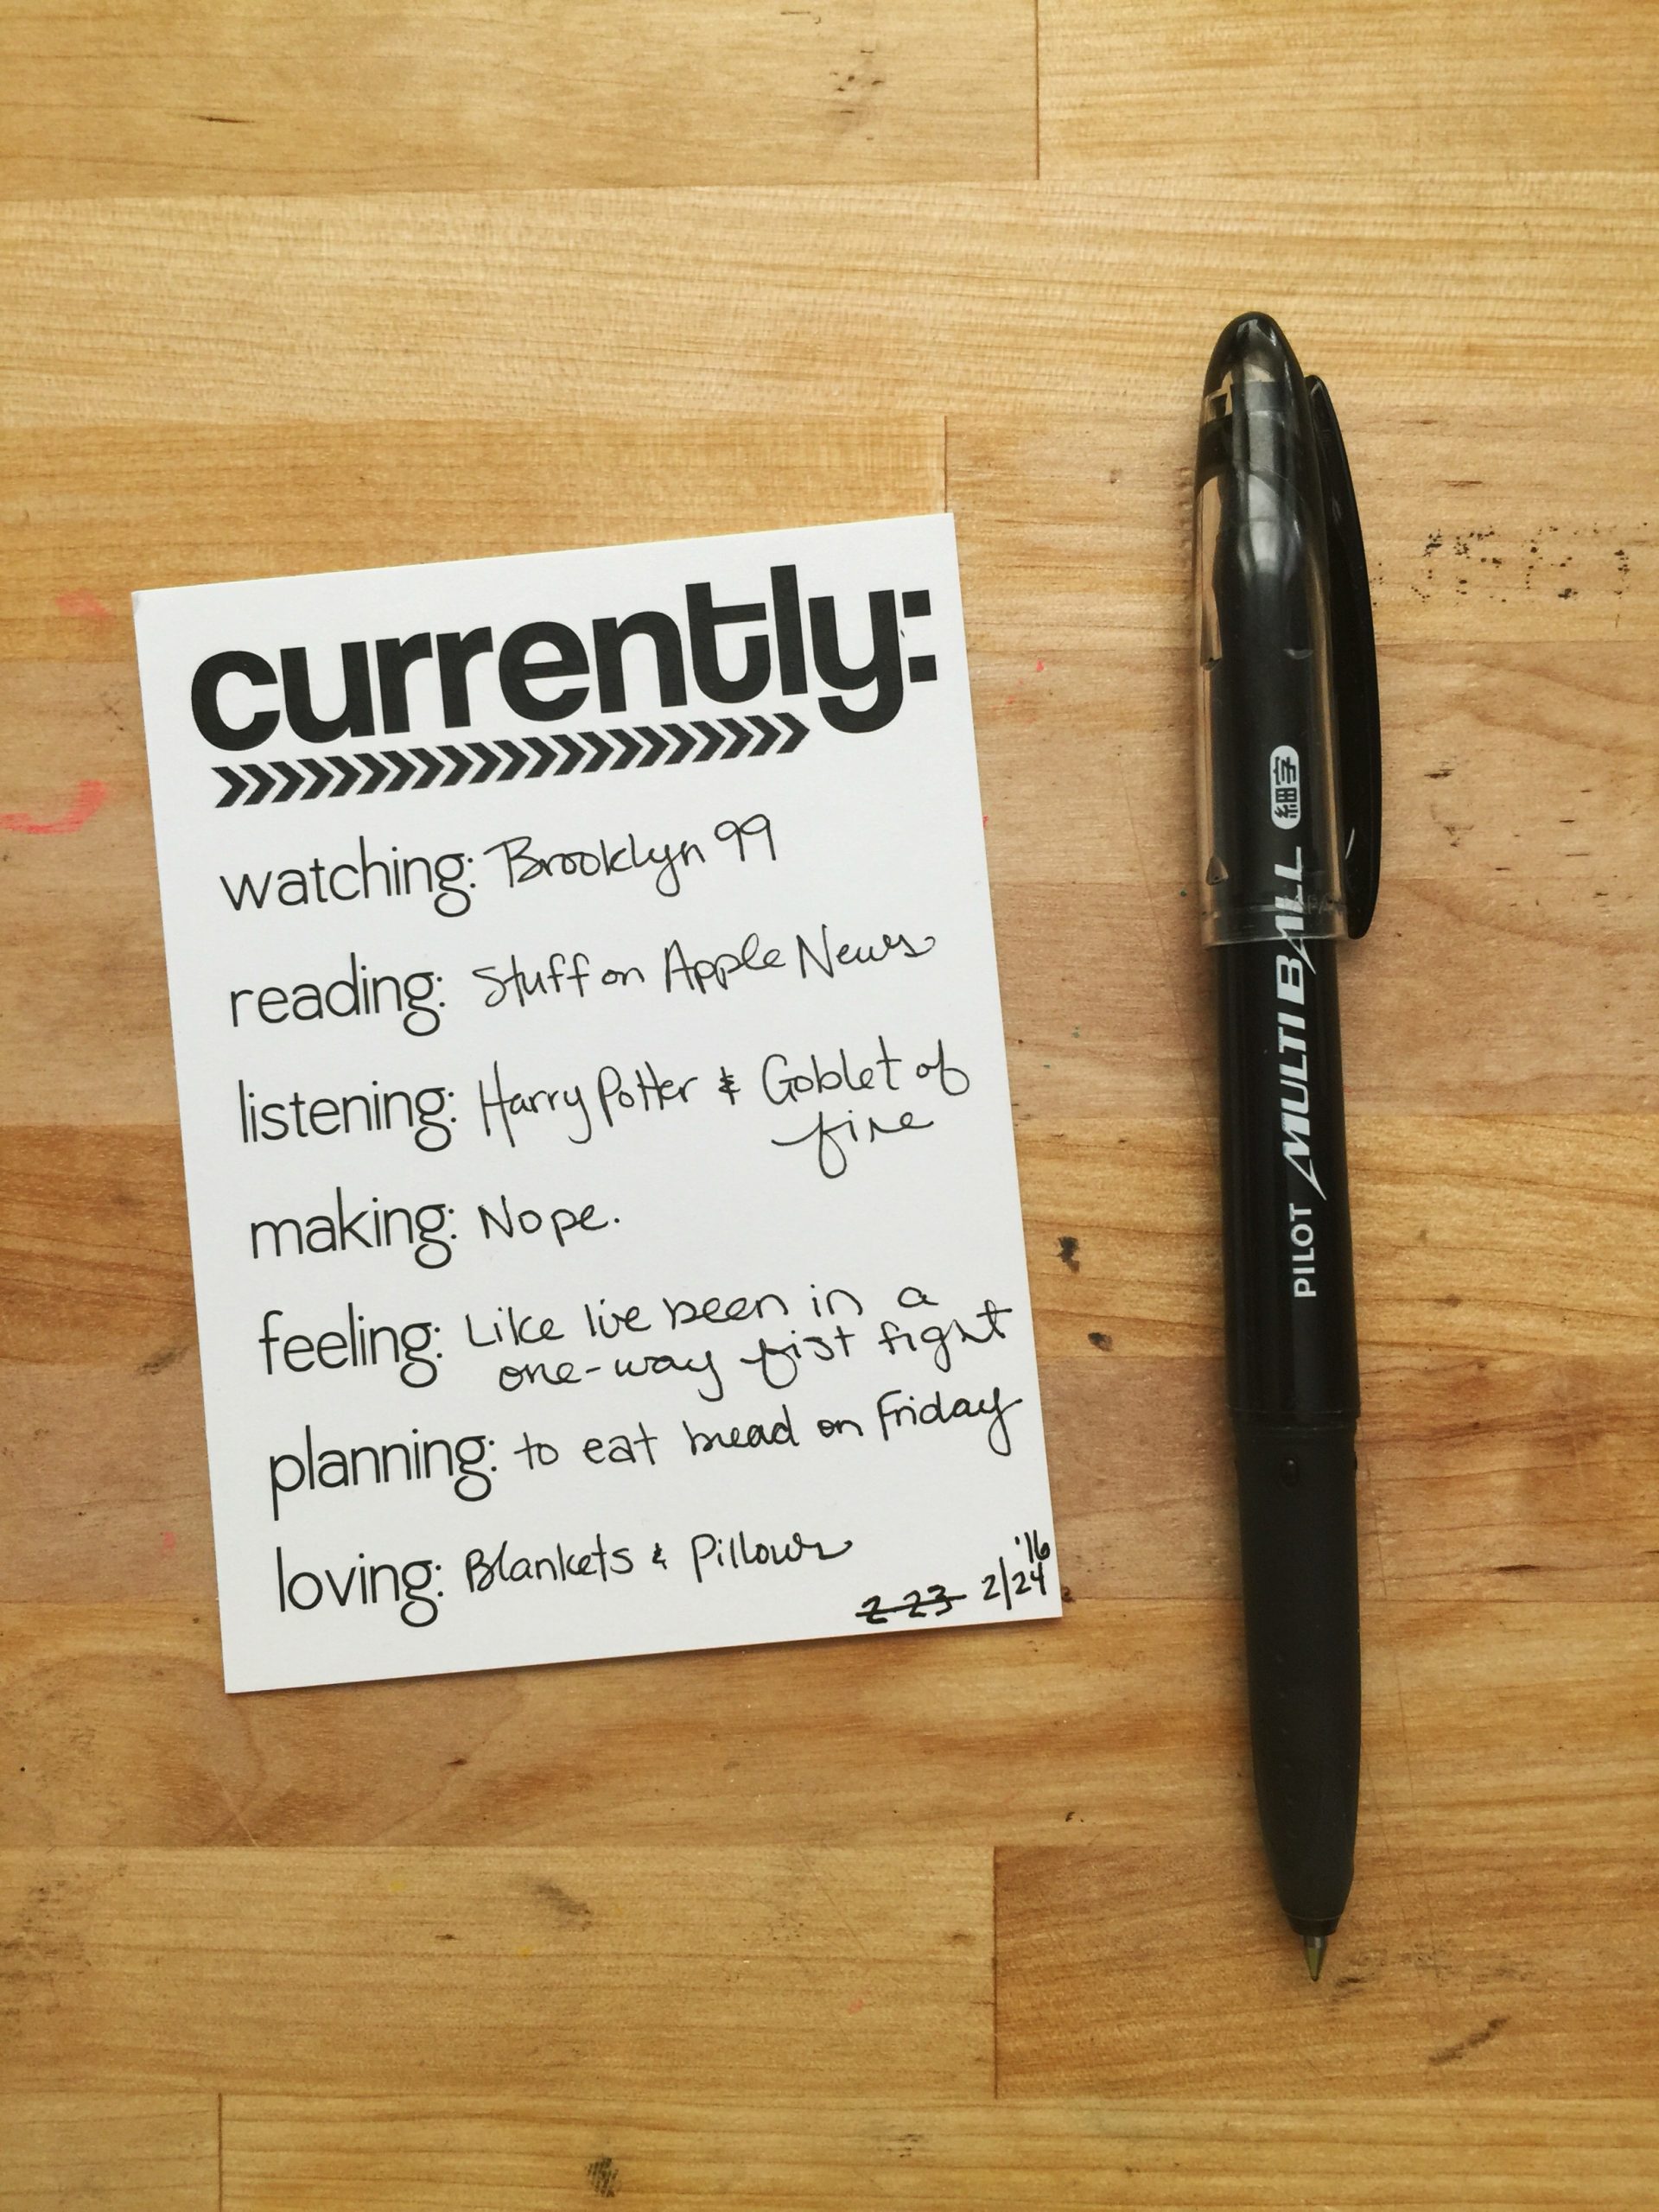 currently:
watching: Brooklyn 99
reading: Stuff on Apple News
listening: Harry Potter & Goblet of
fire
making: Nope.
feeling: Like I've been in a
one-way fist fight
planning: to eat bread on Friday
loving: Blankets & Pillows
'16
2 23 2/24
PILOT MULTI BALL 細字